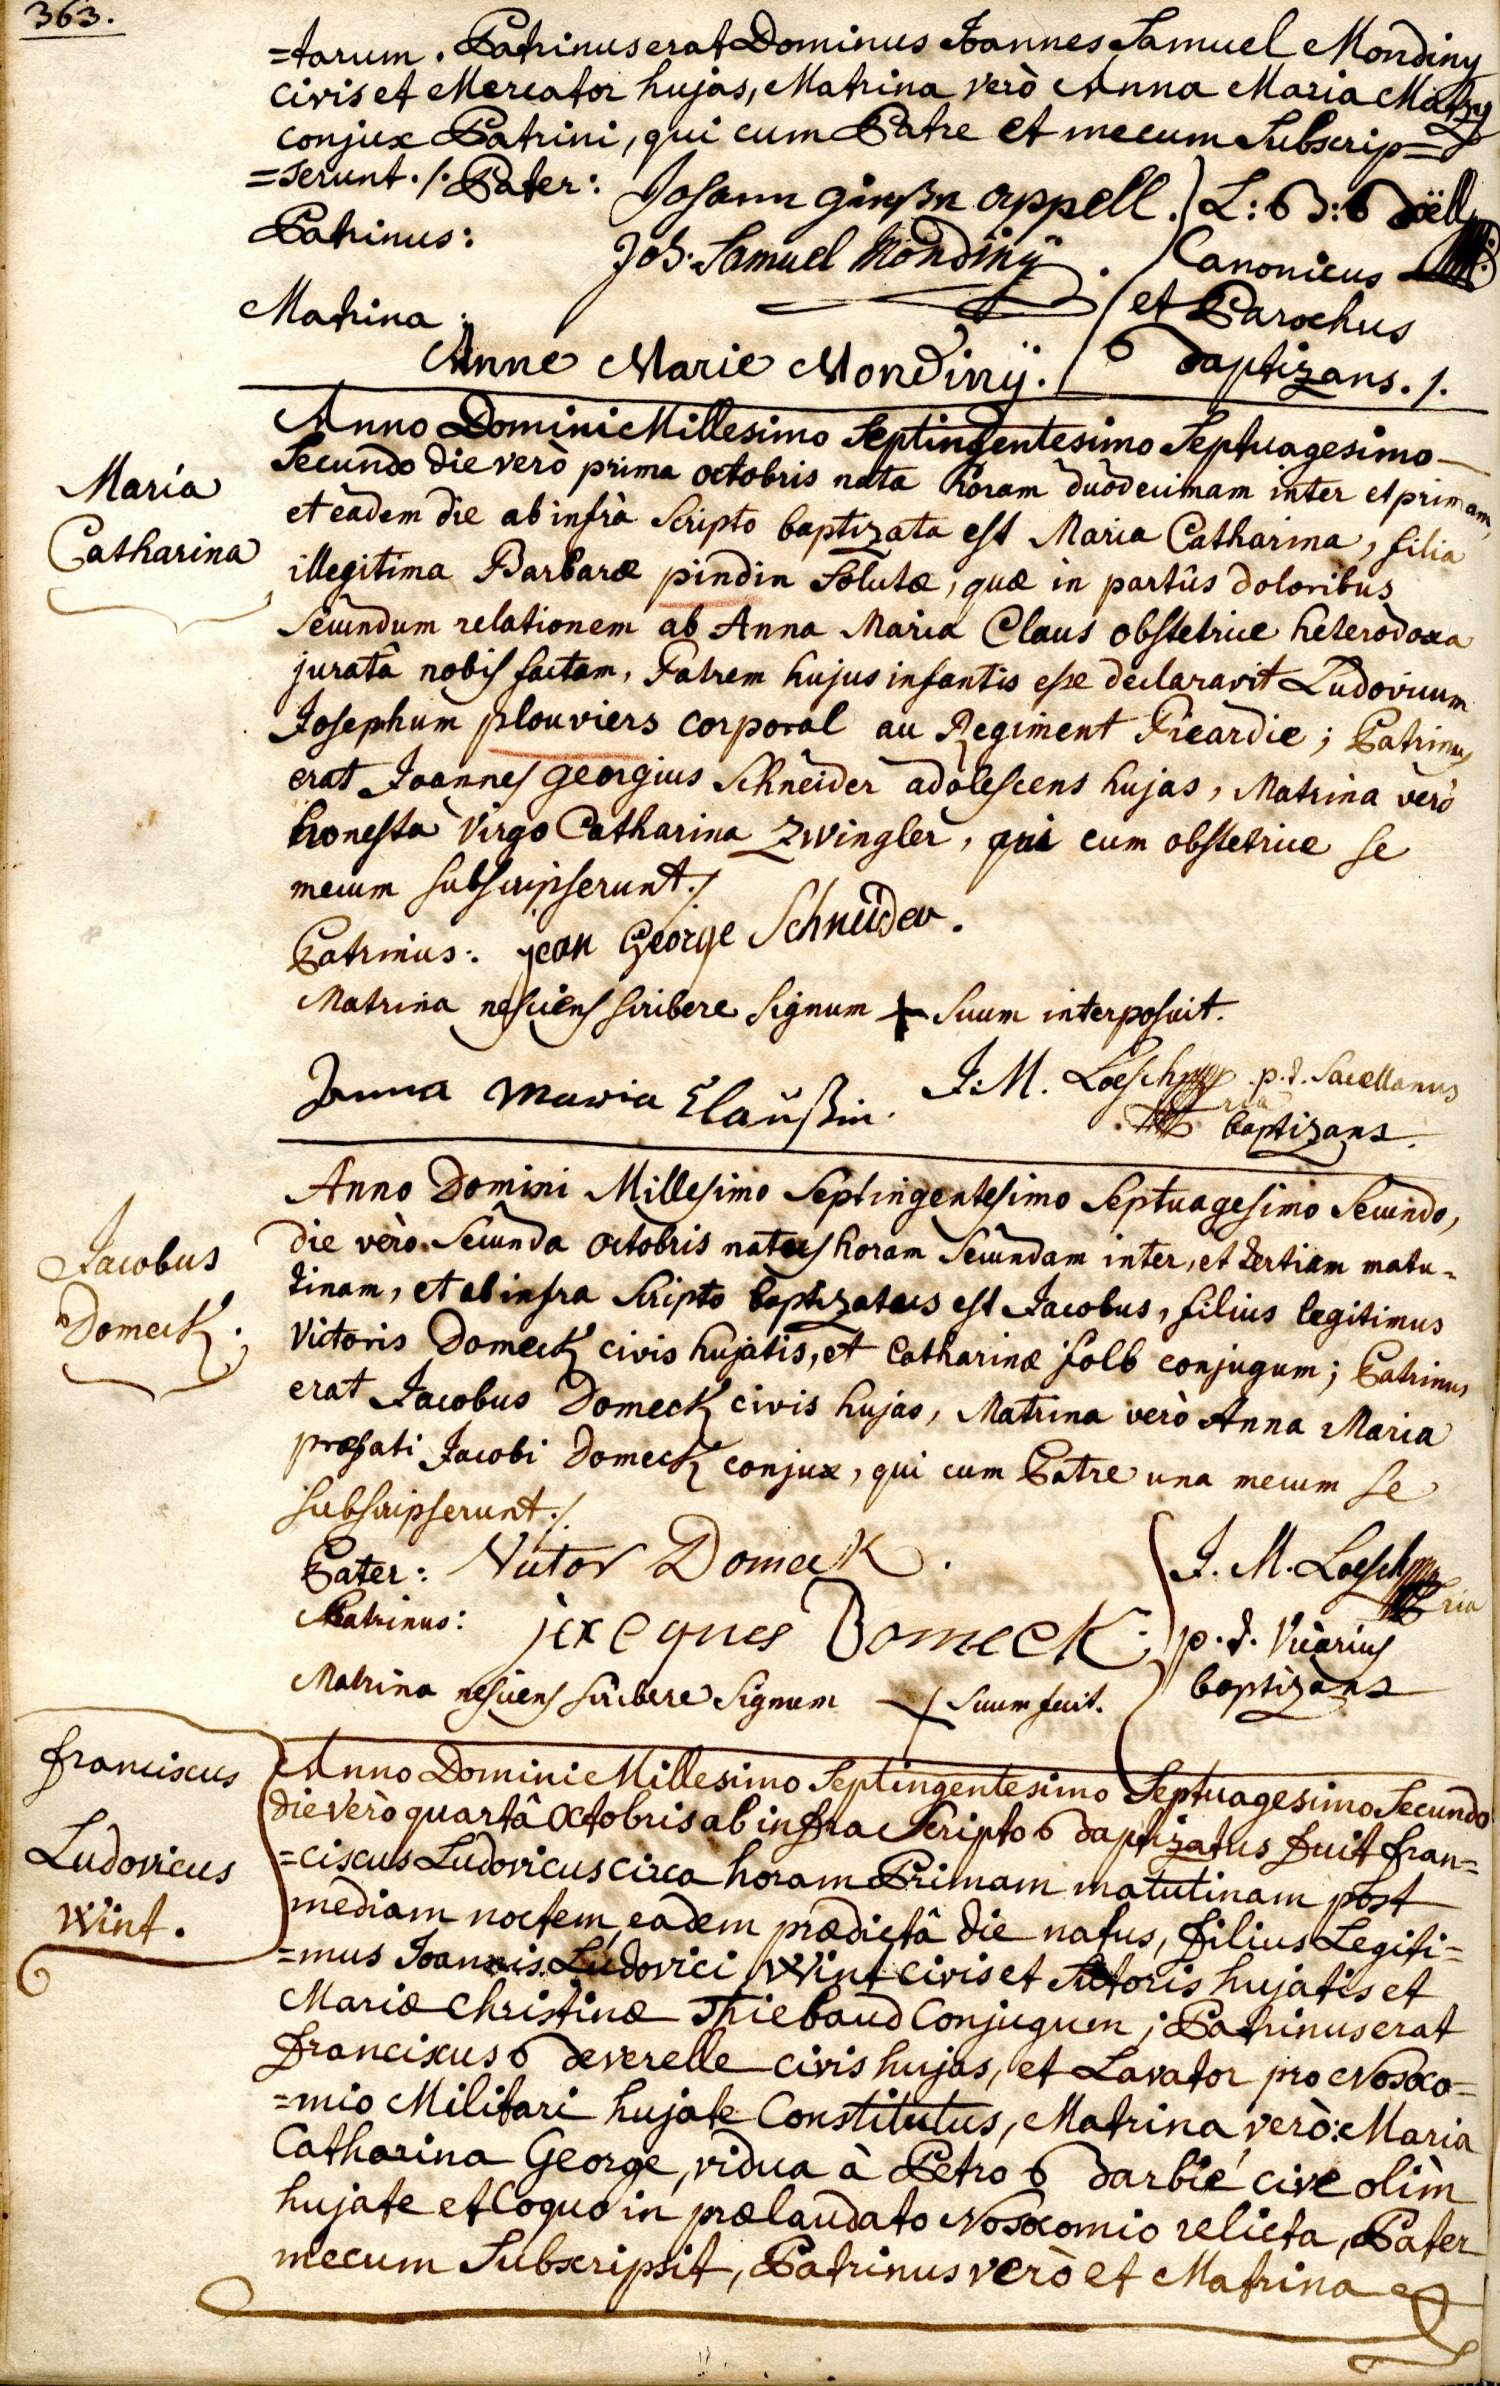 363.
=tarum. Patrinus erat Dominus Joannes Samuel Mondiny
civis et Mercator hujas, Matrina verò Anna Maria Matzy
conjux Patrini, qui cum Patre et mecum Subscrip=
=serunt ./. Pater: Johann appell.
L: B: Böell
Patrinus: Joh. Samuel Mondinÿ.
Canonicus
et Parochus
Matrina:
Anne Marie Mondinÿ.
Baptizans ./.
Maria
Catharina
Anno Domini Millesimo Septingentesimo Septuagesimo
Secundo die verò prima octobris nata horam duodecimam inter et primam,
et eâdem die ab infrà Scripto baptizata est Maria Catharina, filia
illegitima Barbaræ pindin Solutæ, quæ in partûs doloribus
secundum relationem ab Anna Maria Claus obstetrice heterodoxa
juratâ nobis factam, Patrem hujus infantis esse declaravit Ludovicum
Josephum plouviers corporal au Regiment Picardie; Patrinus
erat Joannes georgius Schneider adolescens hujas, Matrina verò
honesta Virgo Catharina Zwingler, qui cum obstetrice se
mecum subscripserunt ./.
Patrinus: jean George Schneider.
Matrina nesciens scribere Signum + Suum interposuit.
Anna Maria Claußin.
J. M. Loesch p. t. Sacellanus
baptizans
Jacobus
Domeck.
Anno Domini Millesimo Septingentesimo Septuagesimo Secundo,
die verò Secunda octobris natus horam Secundam inter, et tertiam matu-
tinam, et ab infra Scripto baptizatus est Jacobus, filius legitimus
Victoris Domeck civis hujatis, et Catharinæ folb conjugum; Patrinus
erat Jacobus Domeck civis hujas, Matrina verò Anna Maria
præfati Jacobi Domeck conjux, qui cum Patre una mecum se
subscripserunt ./.
Pater: Victor Domeck.
J. M. Loesch
Patrinus: jaeques Domeck.
p. t. Vicarius
baptizans
Matrina nesciens scribere Signum + Suum fecit.
Franciscus
Ludovicus
Wint.
Anno Domini Millesimo Septingentesimo Septuagesimo Secundo
die verò quartâ Octobris ab infra Scripto Baptizatus fuit Fran=
=ciscus Ludovicus circa horam Primam matutinam post
mediam noctem, eadem prædictâ die natus, filius Legiti=
=mus Joannis Ludovici Wint civis et Sutoris hujatis et
Mariæ Christinæ Thiebaud Conjugum; Patrinus erat
Franciscus Beverelle civis hujas, et Lavator pro Nosoco=
=mio Militari hujate Constitutus, Matrina verò: Maria
Catharina George, vidua à Petro Barbié cive olìm
hujate et Coquo in prælaudato Nosocomio relicta, Pater
mecum Subscripsit, Patrinus verò et Matrina